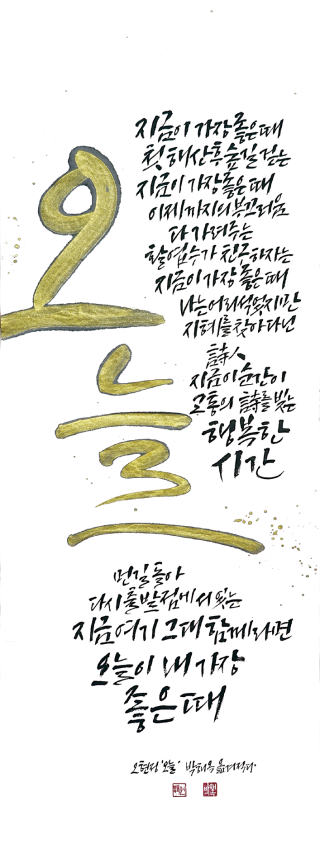 오늘
지금이 가장 좋은 때
첫 해산후 숲길 걷는
지금이 가장 좋은 때
이제까지의 부끄러움
다 가려주는
활엽수가 친구하자는
지금이 가장 좋은 때
나는 어리석었지만
지혜를 찾아다닌
詩人
지금 이 순간이
고통의 詩를 빚는
행복한
시간
먼길 돌아
다시 출발점에서 있는
지금 여기 그대 함께라면
오늘이 내 가장
좋은 때
오현정 '오늘' 박혜옥